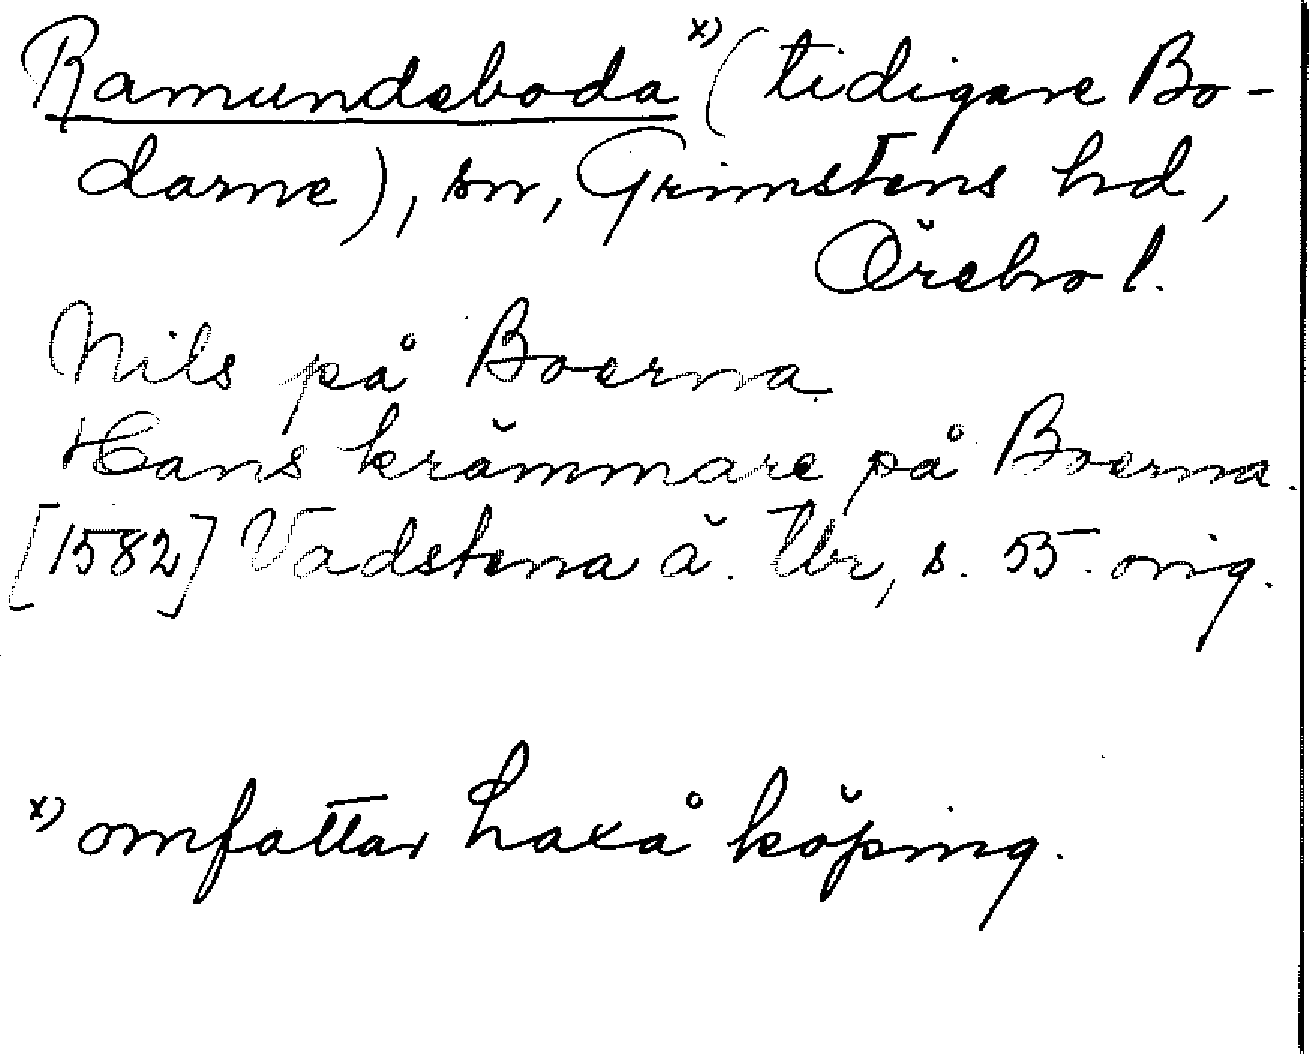 Ramundeboda x) (tidigare Bo-
darne), sn, Grimstens hd,
Örebro l.
Nils på Boerna
Hans krämmare på Boerna.
[1582] Vadstena ä. tbr, s. 55. orig.
x) omfattar Laxå köping.